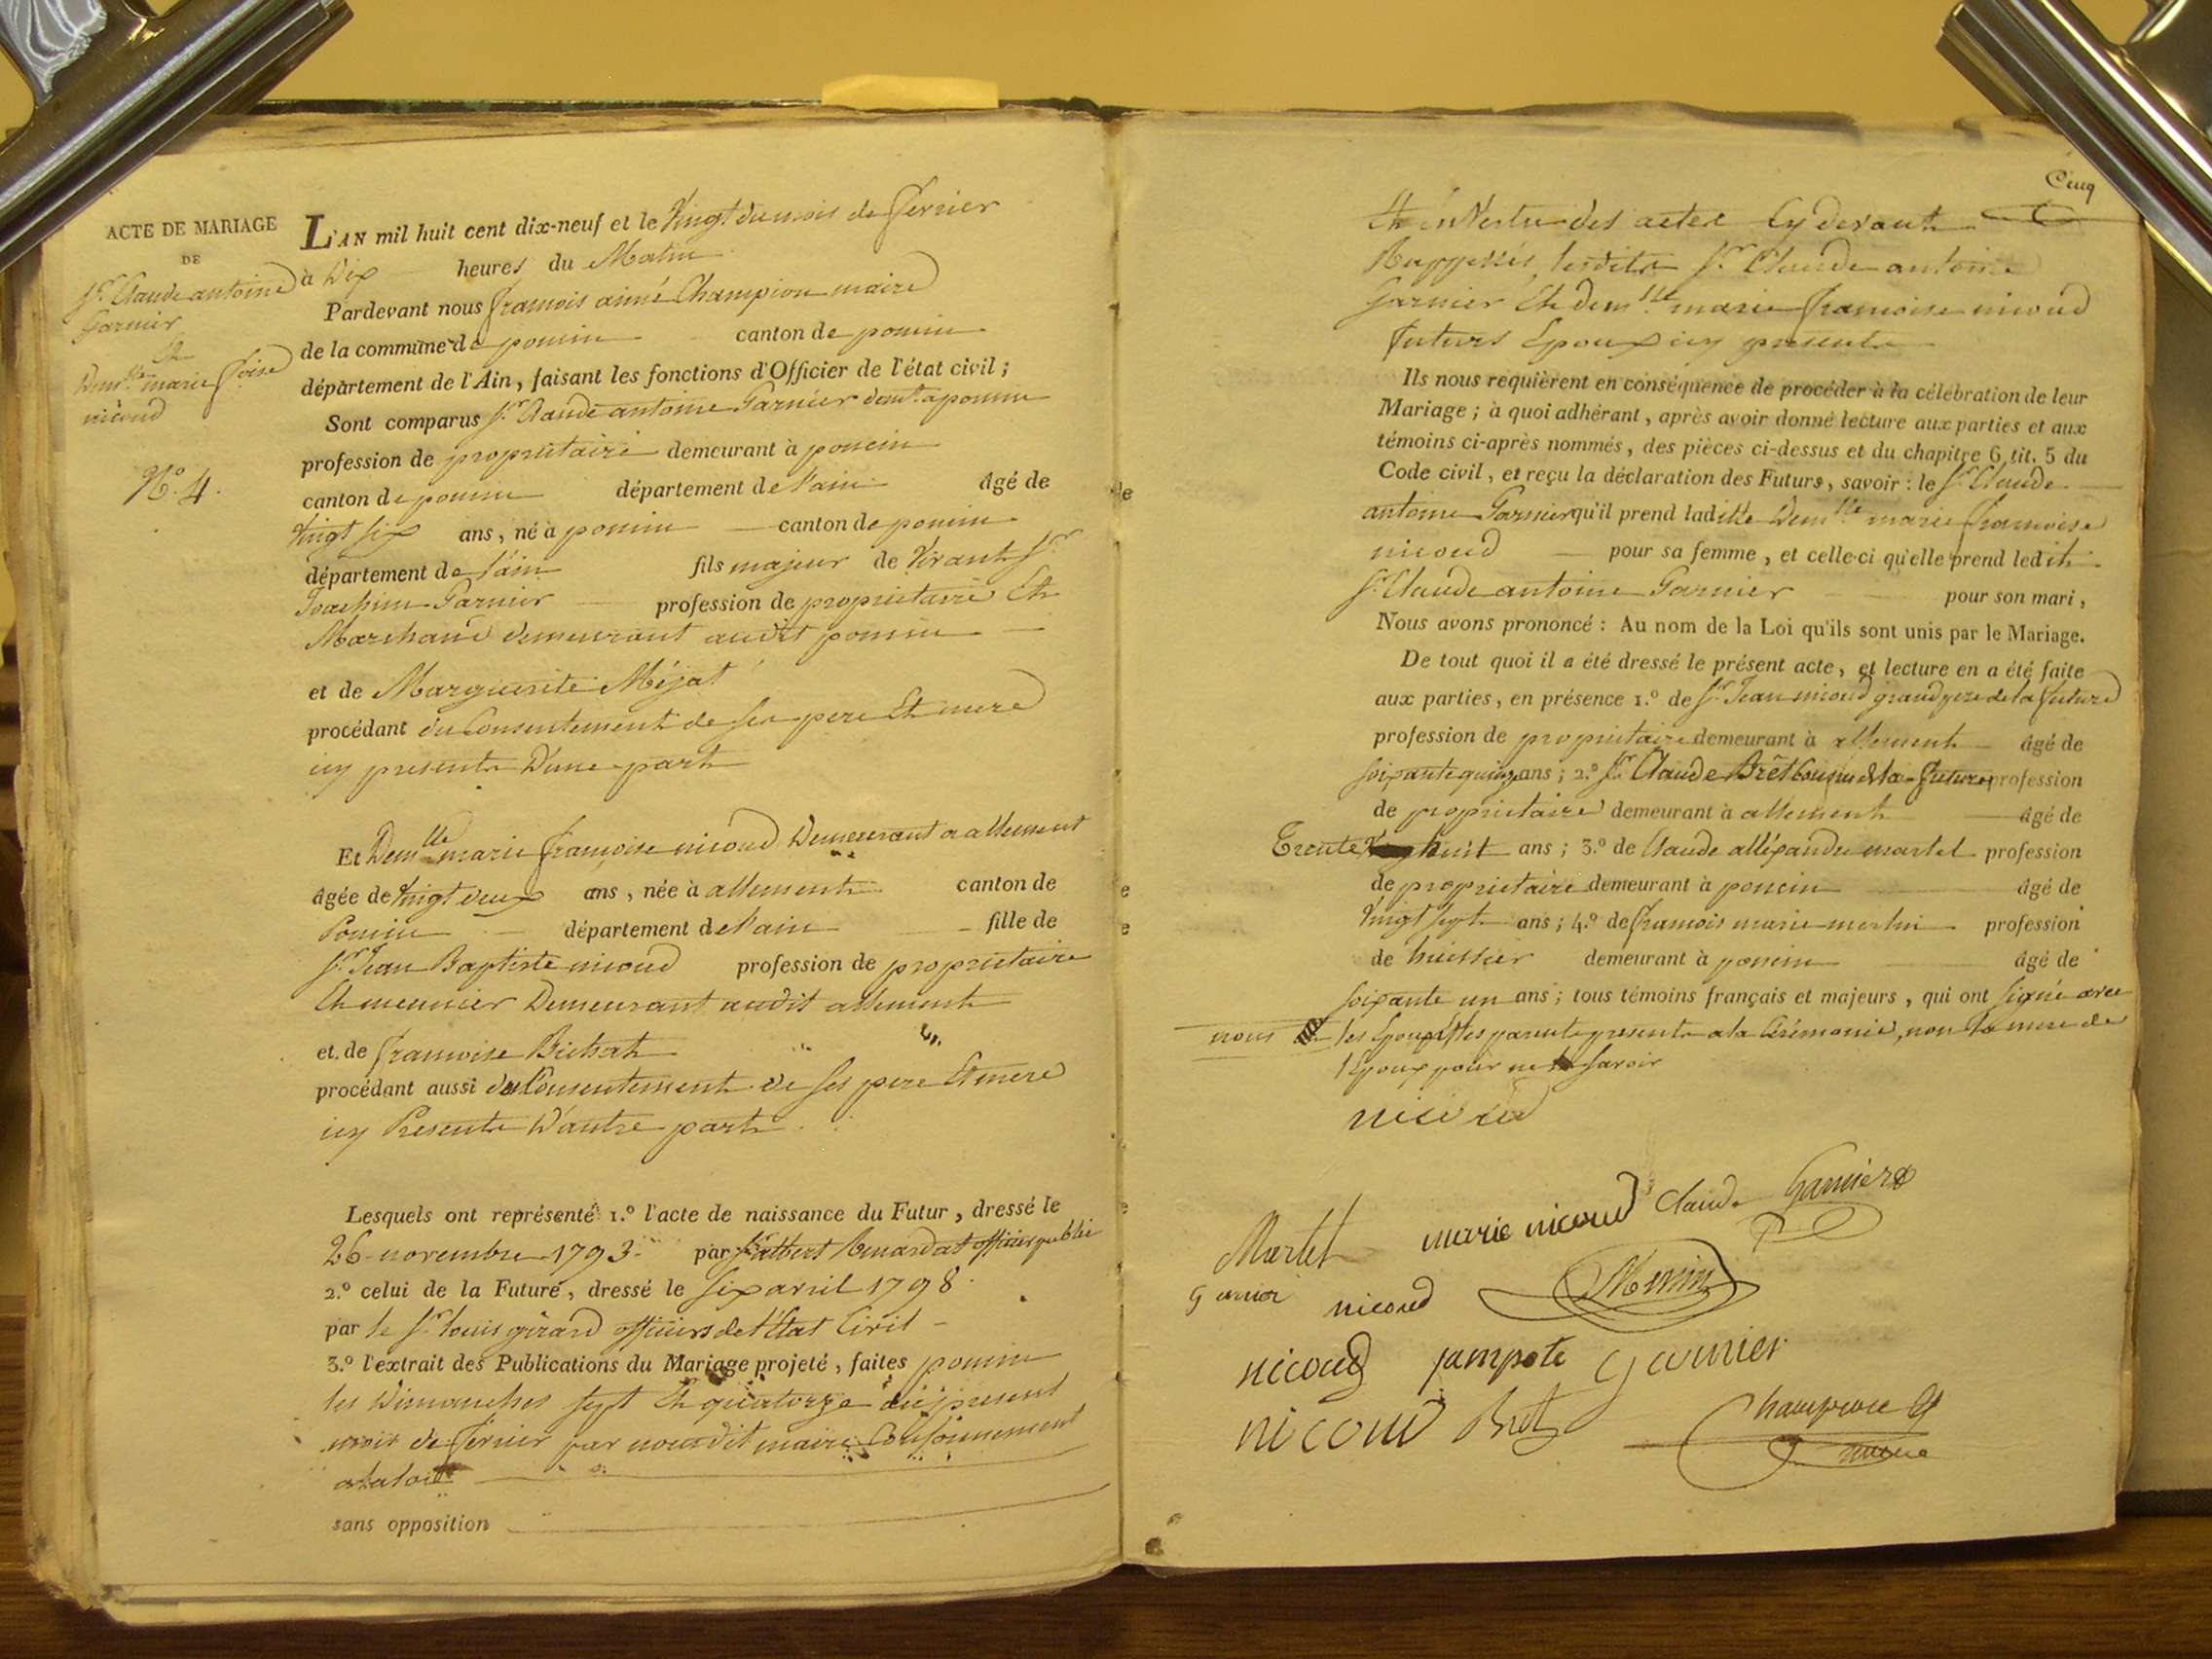 ACTE DE MARIAGE
DE
Sr. Claude antoine
Garnier
Et
Demlle marie foise
nicoud
N.o 4.
L'AN mil huit cent dix-neuf et le Vingt du mois de fevrier
à Dix heures du Matin
Pardevant nous francois aimé Champion maire
de la commune de poncin canton de poncin
département de l'Ain, faisant les fonctions d'Officier de l'état civil;
Sont comparus Sr. Claude antoine Garnier demt. a poncin
profession de proprietaire demeurant à poncin
canton de poncin département de l'ain âgé de
Vingt six ans, né à poncin canton de poncin
département de l'ain fils majeur de Vivant Sr.
Joachim Garnier profession de proprietaire Et
Marchand demeurant audit poncin
et de Marguerite Méjat
procédant du Consentement de ses pere Et mere
icy presents D'une part
Et Demlle marie francoise nicoud Demeurant a allement
âgée de vingt deux ans, née à allement canton de
Poncin département de l'ain fille de
Sr. Jean Baptiste nicoud profession de proprietaire
Et meunier Demeurant audit allement
et de francoise Bichat
procédant aussi du Consentement de ses pere Et mere
icy Presents D'autre part
Lesquels ont représenté 1.o l'acte de naissance du Futur, dressé le
26 novembre 1793 par albert officier public
2.o celui de la Future, dressé le six avril 1798
par le Sr. louis girard officier de l'Etat Civil
3.o l'extrait des Publications du Mariage projeté, faites poncin
les Dimanches sept Et quatorze du present
mois de fevrier par nous dit maire Conformement
a la loi
sans opposition
Cinq
Et en Vertu des actes Cy devant
Rappellés, lesdits Sr. Claude antoine
Garnier Et demlle. marie francoise nicoud
futurs Epoux icy presents
Ils nous requièrent en conséquence de procéder à la célébration de leur
Mariage; à quoi adhérant, après avoir donné lecture aux parties et aux
témoins ci-après nommés, des pièces ci-dessus et du chapitre 6, tit. 5 du
Code civil, et reçu la déclaration des Futurs, savoir: le Sr. Claude
antoine Garnier qu'il prend laditte Demlle marie francoise
nicoud pour sa femme, et celle-ci qu'elle prend ledit
Sr. Claude antoine Garnier pour son mari,
Nous avons prononcé: Au nom de la Loi qu'ils sont unis par le Mariage.
De tout quoi il a été dressé le présent acte, et lecture en a été faite
aux parties, en présence 1.o de Sr. Jean nicoud grand pere de la future
profession de proprietaire demeurant à allement âgé de
soixante quinze ans; 2.o Sr. Claude Brêt Cousin de la future profession
de proprietaire demeurant à allement âgé de
Trente huit ans; 3.o de Claude allexandre martel profession
de proprietaire demeurant à poncin âgé de
Vingt sept ans; 4.o de francois marie merlin profession
de huissier demeurant à poncin âgé de
soixante un ans; tous témoins français et majeurs, qui ont signé avec
nous les Epoux Et les parents presents a la Cérémonie, non la mere de
l'Epoux pour ne savoir
nicoud
Martel marie nicoud Claude Garnier
garnier nicoud Merlin
nicoud jampote garnier
nicoud Bret Champion
maire